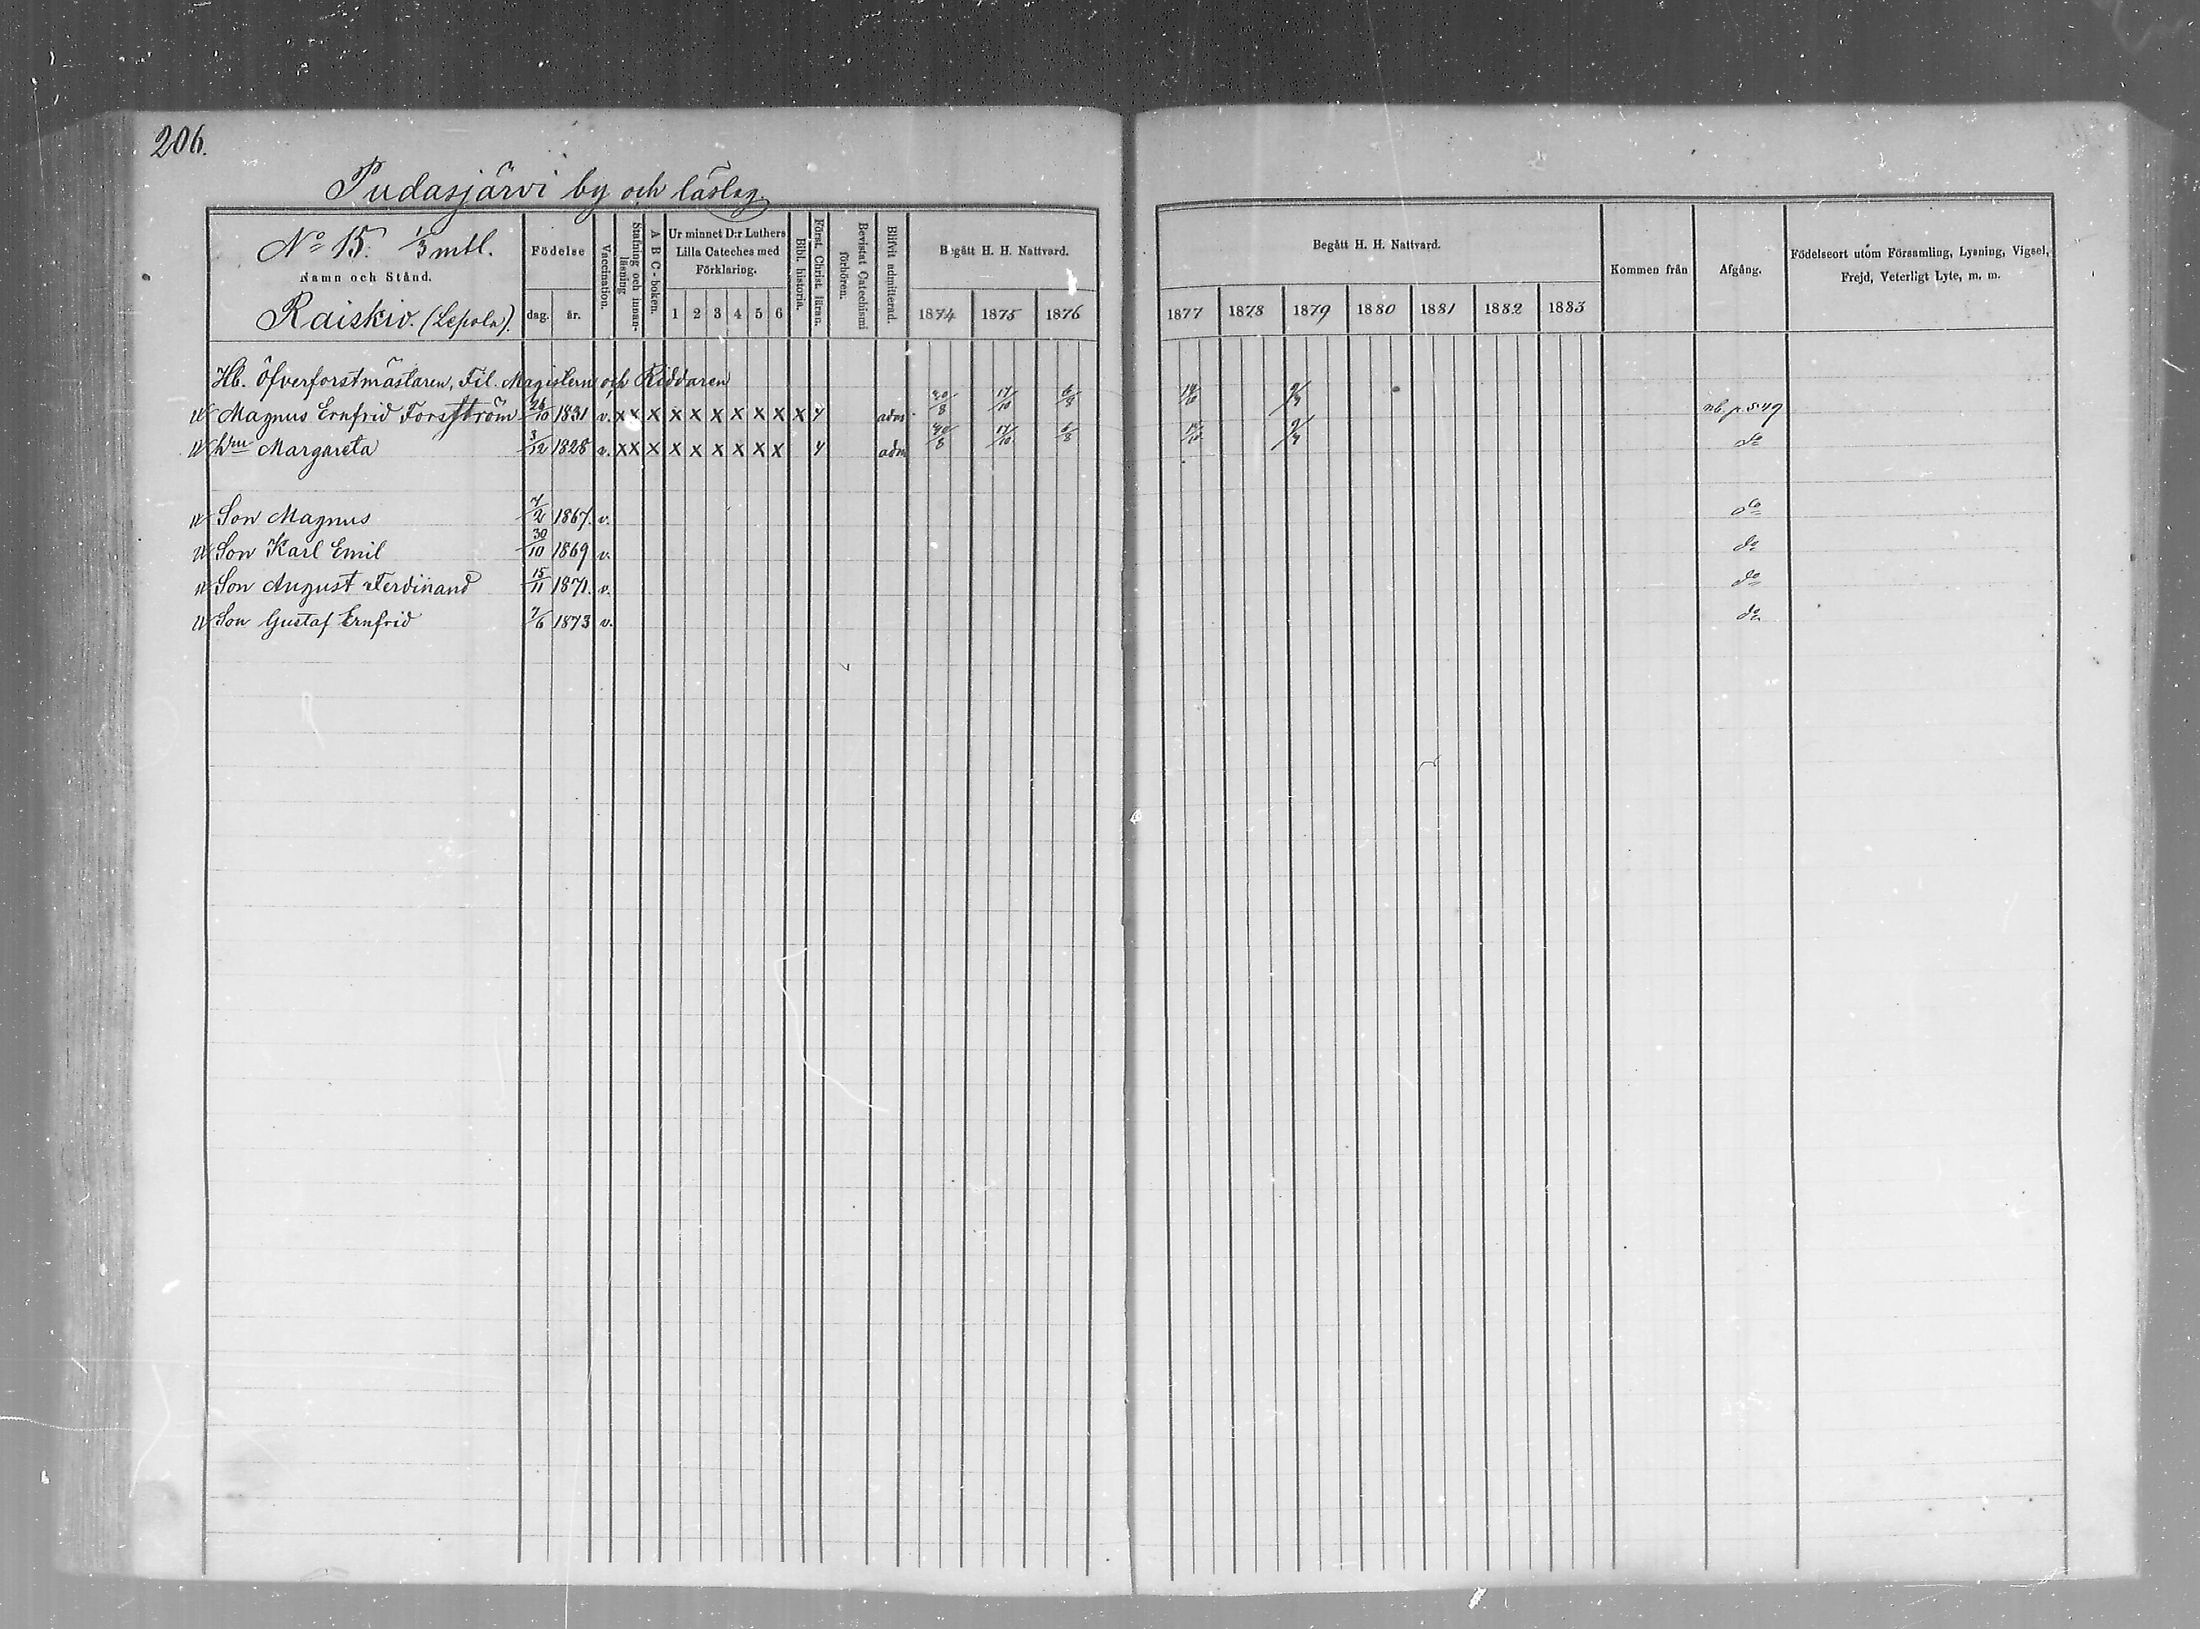 206.
Pudasjärvi by och läslag
No 15. 1/3 mtl.
Namn och Stånd.
Raiskio. (Lepola).
Födelse
dag. år.
Vaccination.
Stafning och innan-läsning
A B C-boken.
Ur minnet D:r Luthers Lilla Cateches med Förklaring.
1 2 3 4 5 6
Bibl. historia.
Först. Christ. läran.
Bevistat Catechismi förhören.
Blifvit admitterad.
Begått H. H. Nattvard.
1874 1875 1876
Begått H. H. Nattvard.
1877 1878 1879 1880 1881 1882 1883
Kommen från
Afgång.
Födelseort utom Församling, Lysning, Vigsel, Frejd, Veterligt Lyte, m. m.
Hb. Öfverforstmästaren, Fil. Magistern och Riddaren
Magnus Ernfrid Forsström 26/10 1831 v. x x x x x x x x x x 4 adm. 30/8 17/10 6/8 14/10 9/3 nb. p. 549
hm Margareta 3/12 1828 v. x x x x x x x x x 4 adm 30/8 17/10 6/8 14/10 9/3 do
Son Magnus 7/2 1867. v. do
Son Karl Emil 30/10 1869 v. do
Son August Ferdinand 15/11 1871. v. do
Son Gustaf Ernfrid 7/6 1873 v. do